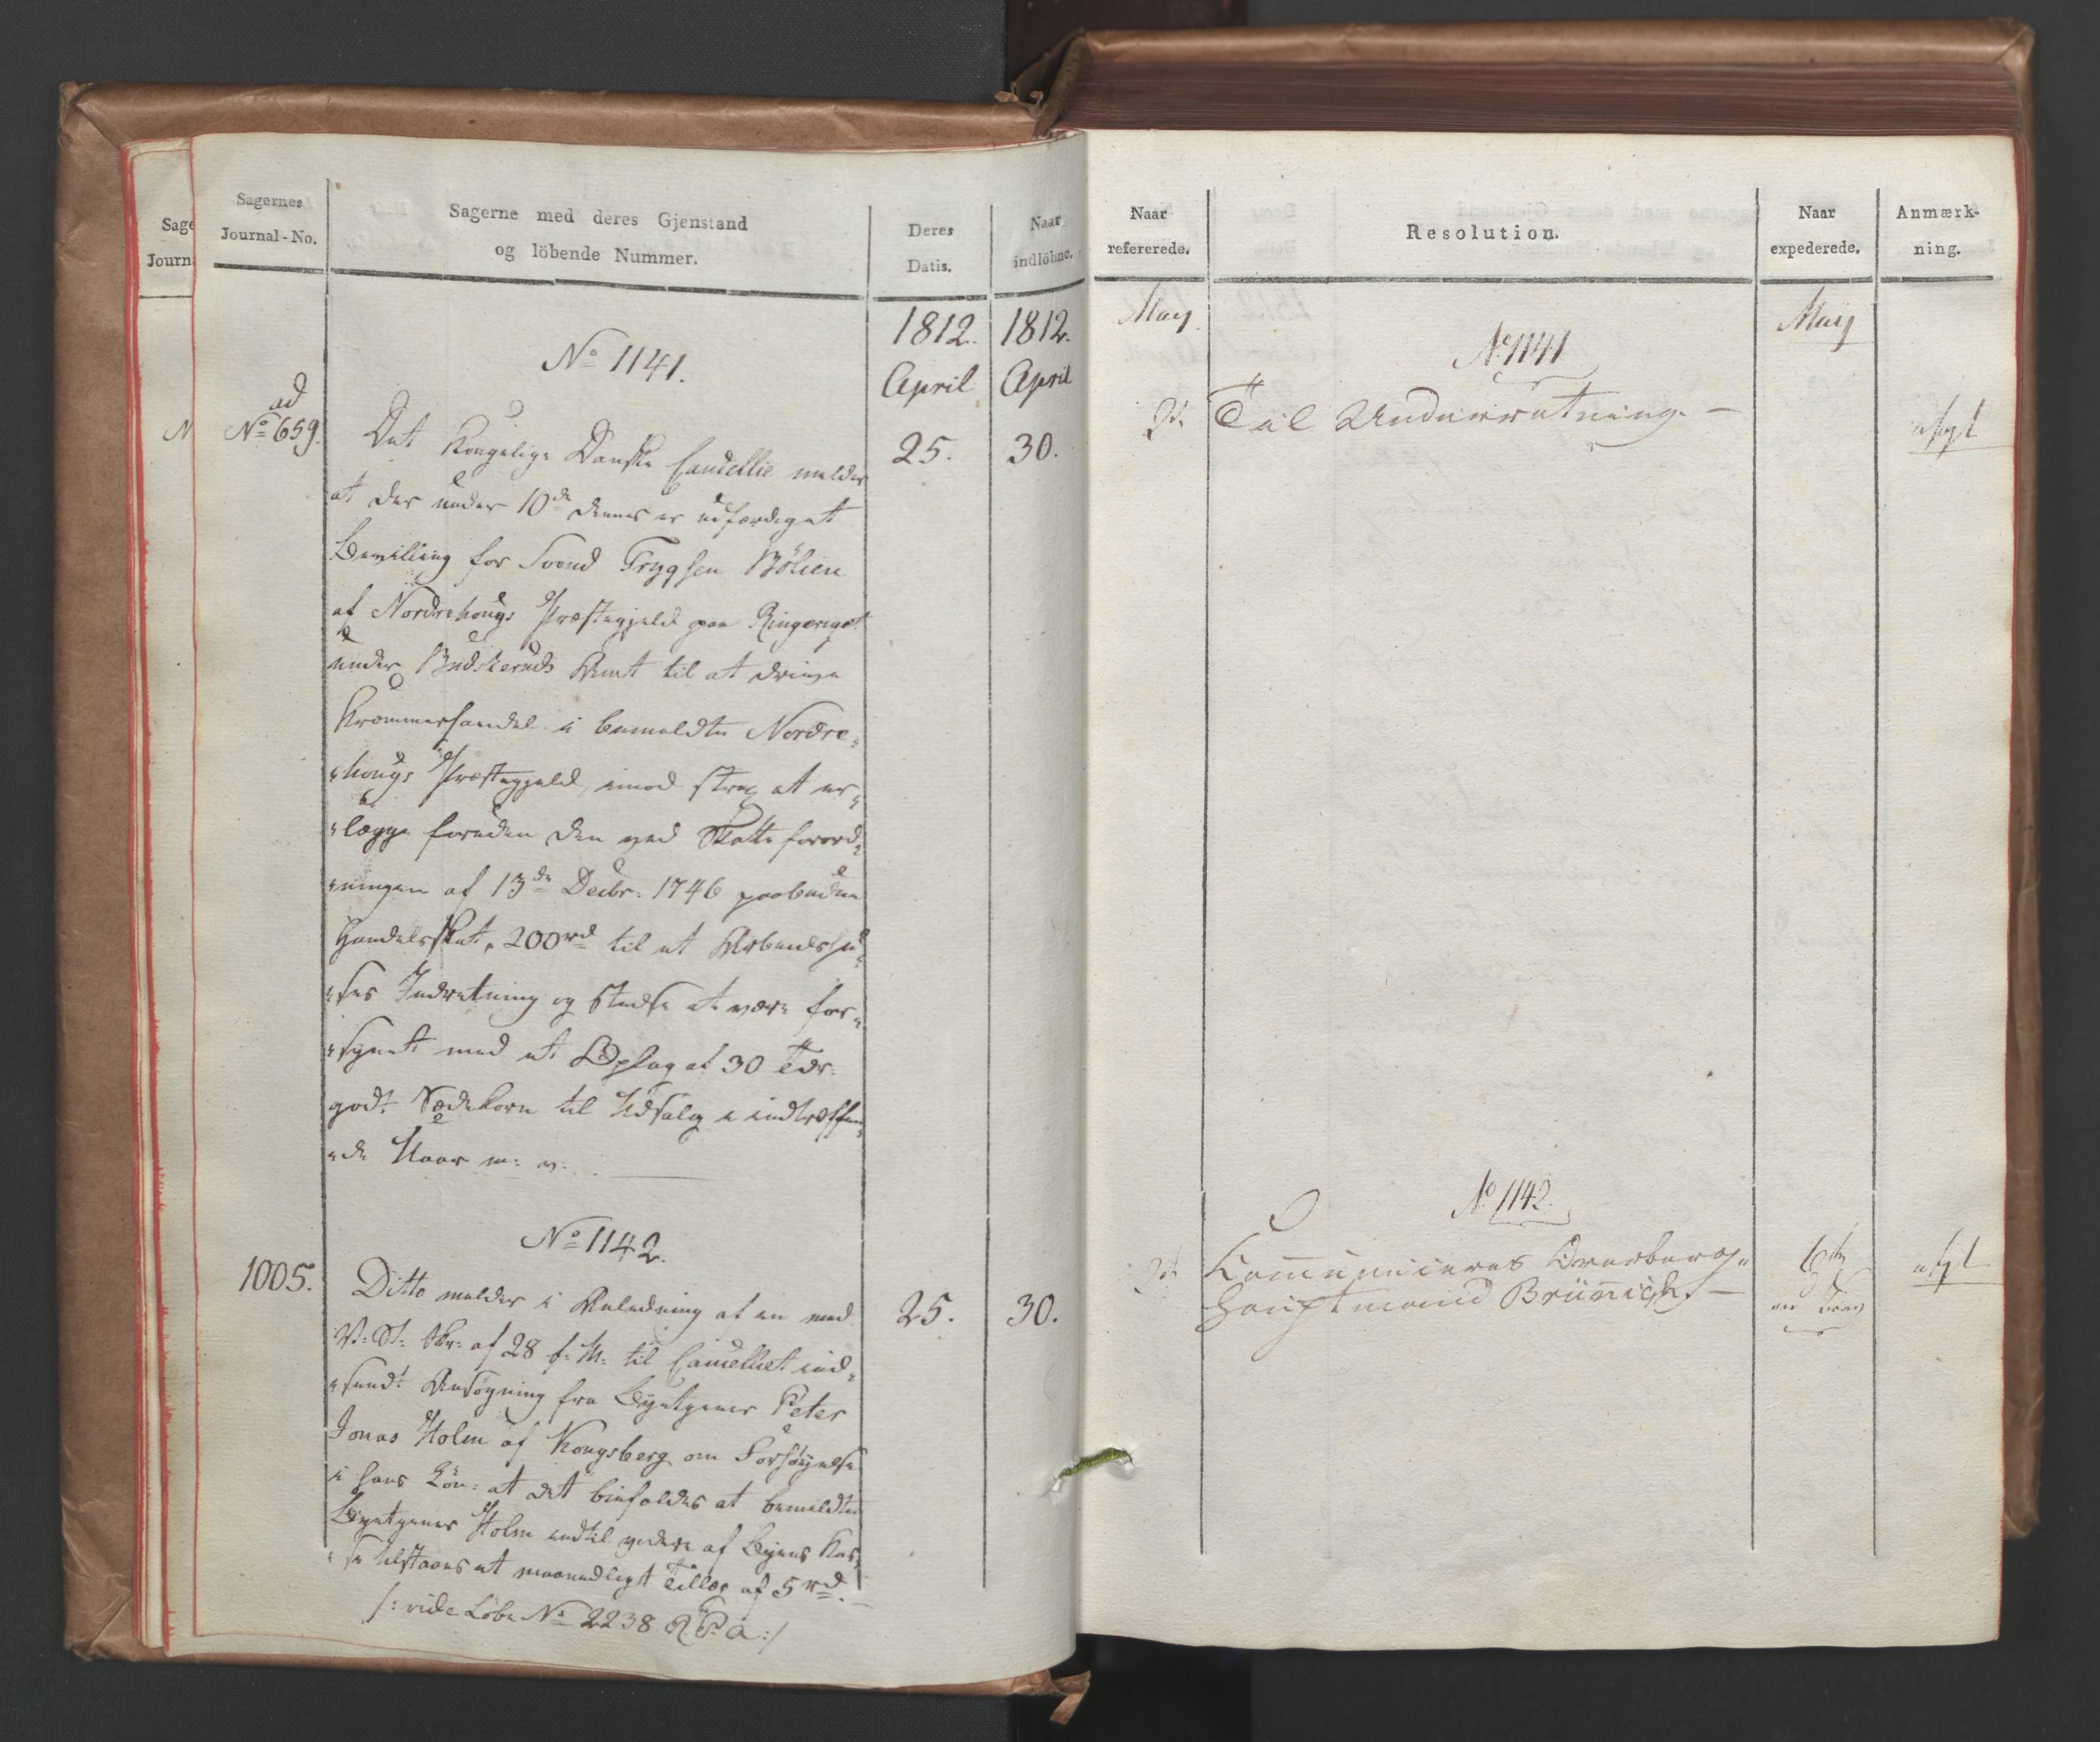 Sage
Journa
N
Sagernes
Journal-No.
Sagerne med deres Gjenstand
og löbende Nummer.
Deres
Datis.
Naar
indlöbne.
1812.
April
1812.
April
No 1141.
ad
No 659.
25.
30.
Det Kongelige Danske Cancellie melder
at der under 10de dennes er udfærdiget
Bevilling for Svend Trygsen Bölien
af Nordrehougs Præstegjeld paa Ringeriget
under Budskeruds Amt til at drive
Kræmmerhandel i bemeldte Nordre-
hougs Præstegjeld, imod strax at er-
lægge foruden den ved Skatteforord-
ningen af 13de Decbr. 1746 paabudne
Handelsskat, 200rd til et Arbeidshu-
ses Indretning og stedse at være for-
synet med et Oplag af 30 Tdr.
godt Sædekorn til Udsalg i indtræffen-
de Uaar m: v:
No 1142.
1005.
25.
30.
Ditto melder i Anledning af en med
V: St: Skr: af 28 f: M: til Cancelliet ind-
sendt Ansögning fra Byetjener Peter
Jonas Holm af Kongsberg om Forhöyelse
i hans Lön: at det bifaldes at bemeldte
Byetjener Holm indtil videre af Byens Kas-
se tilstaaes et maanedligt Tillæg af 5rd.
/: vide Löbe No 2238 R. P. a :/
Naar
refererede.
Resolution.
Naar
expederede.
Anmærk-
ning.
May
May
No 1141
2d.
Til Underretning. —
afgt
No 1142.
2d.
Communiceres Overberg-
hauptmand Brünnich. —
6te
afgt